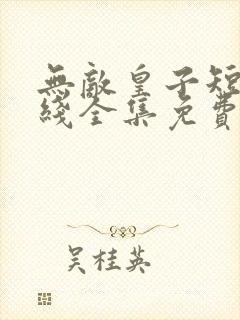 無敵皇子短
綫全集免費
吴桂英